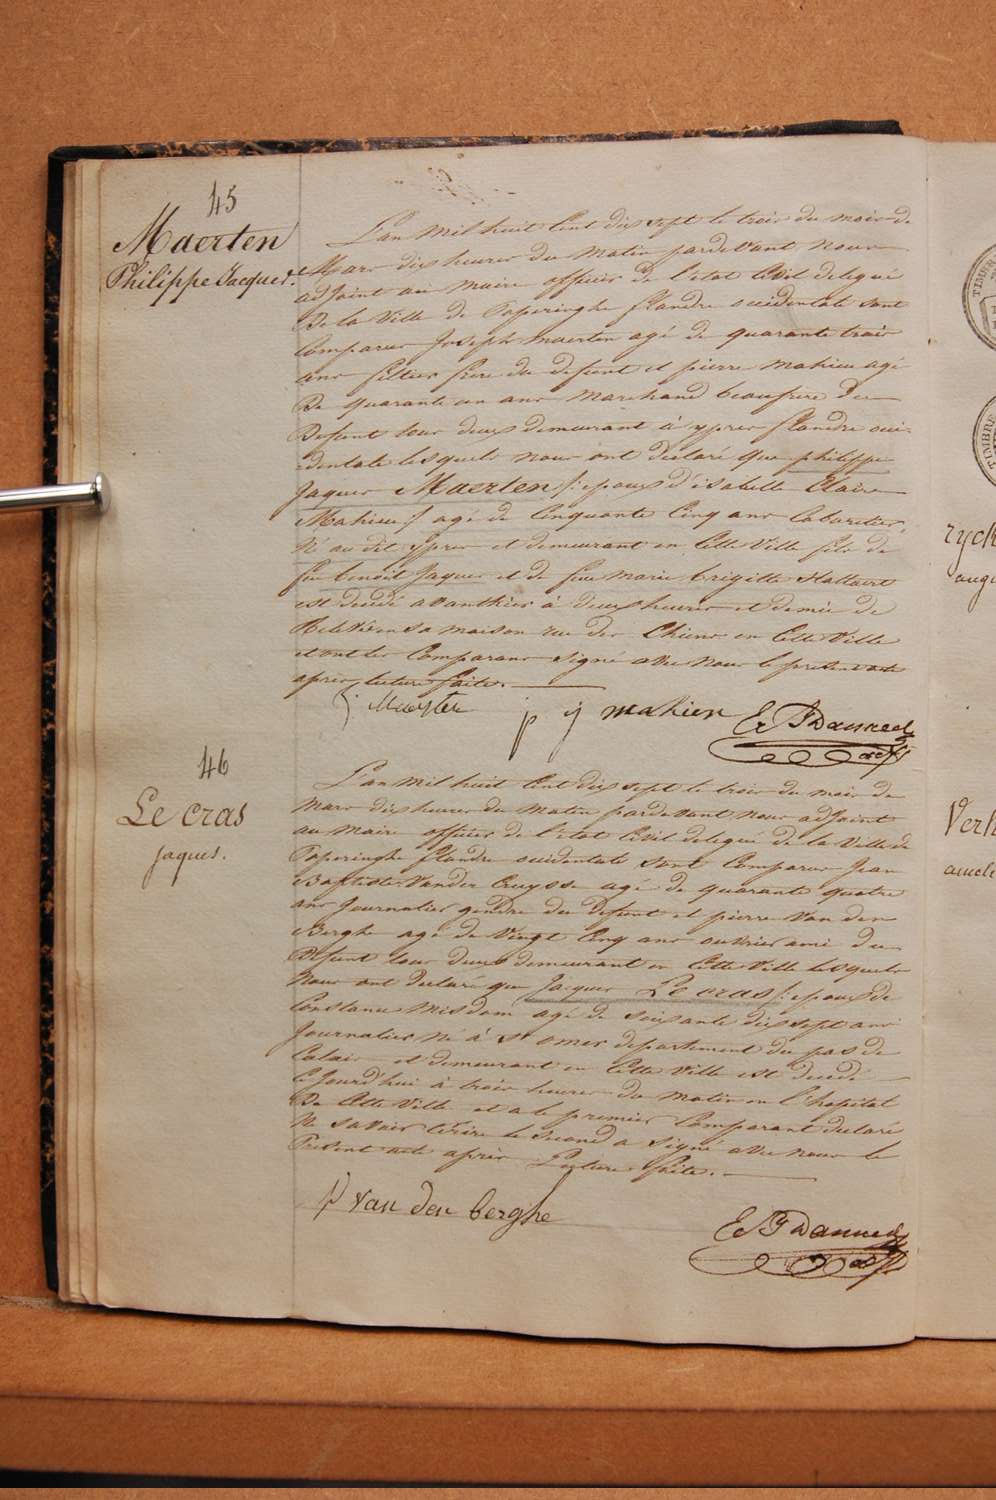 45
Maerten
Philippe Jacques.
L'an mil huit Cent dix sept le trois du mois de
Mars dix heures du Matin pardevant nous
adjoint au maire officier de l'état Civil delegué
De la Ville de Poperinghe flandre occidentale sont
Comparus Joseph maerten agé de quarante trois
ans frere du defunt et pierre mahieu agé
De quarante un ans marchand beaufrere Du
Defunt tous deux demeurant à ypres flandre occi-
dentale lesquels nous ont declaré que philippe
Jaques Maerten /: epoux d'isabelle Claire
Mahieu :/ agé de Cinquante Cinq ans Cabaretier,
Né au dit ypres et demeurant en Cette Ville fils de
feu benoit Jaques et de feue marie brigitte Hallaert
est decedé avanthier à Deux heures et demie de
Relevé en sa maison rue des Chiens en Cette Ville
et ont les Comparans signé avec nous le présent acte
apres lecture faite.
p j mahieu
46
Le cras
jaques.
L'an mil huit Cent dix sept le trois du mois de
mars dix heures du matin pardevant nous adjoint
au maire officier de l'état Civil delegué de la Ville de
Poperinghe flandre occidentale sont Comparus Jean
Baptiste Vander Cruysse agé de quarante quatre
ans Journalier gendre du Defunt et pierre Van den
Berghe agé de Vingt Cinq ans ouvrier ami Du
Defunt tous deux demeurant en Cette Ville lesquels
Nous ont declaré que Jacques Le cras /: epoux de
Constance misdom agé de soixante dix sept ans
Journalier Né à St omer departement du pas de
Calais et demeurant en Cette Ville est decedé
ce Jourd'hui à trois heures du matin en l'hopital
De Cette Ville et a le premier Comparant declaré
Ne savoir ecrire le second a signé avec nous le
Present acte après Lecture faite.
p van den berghe
ryck
Verh
TIMBRE